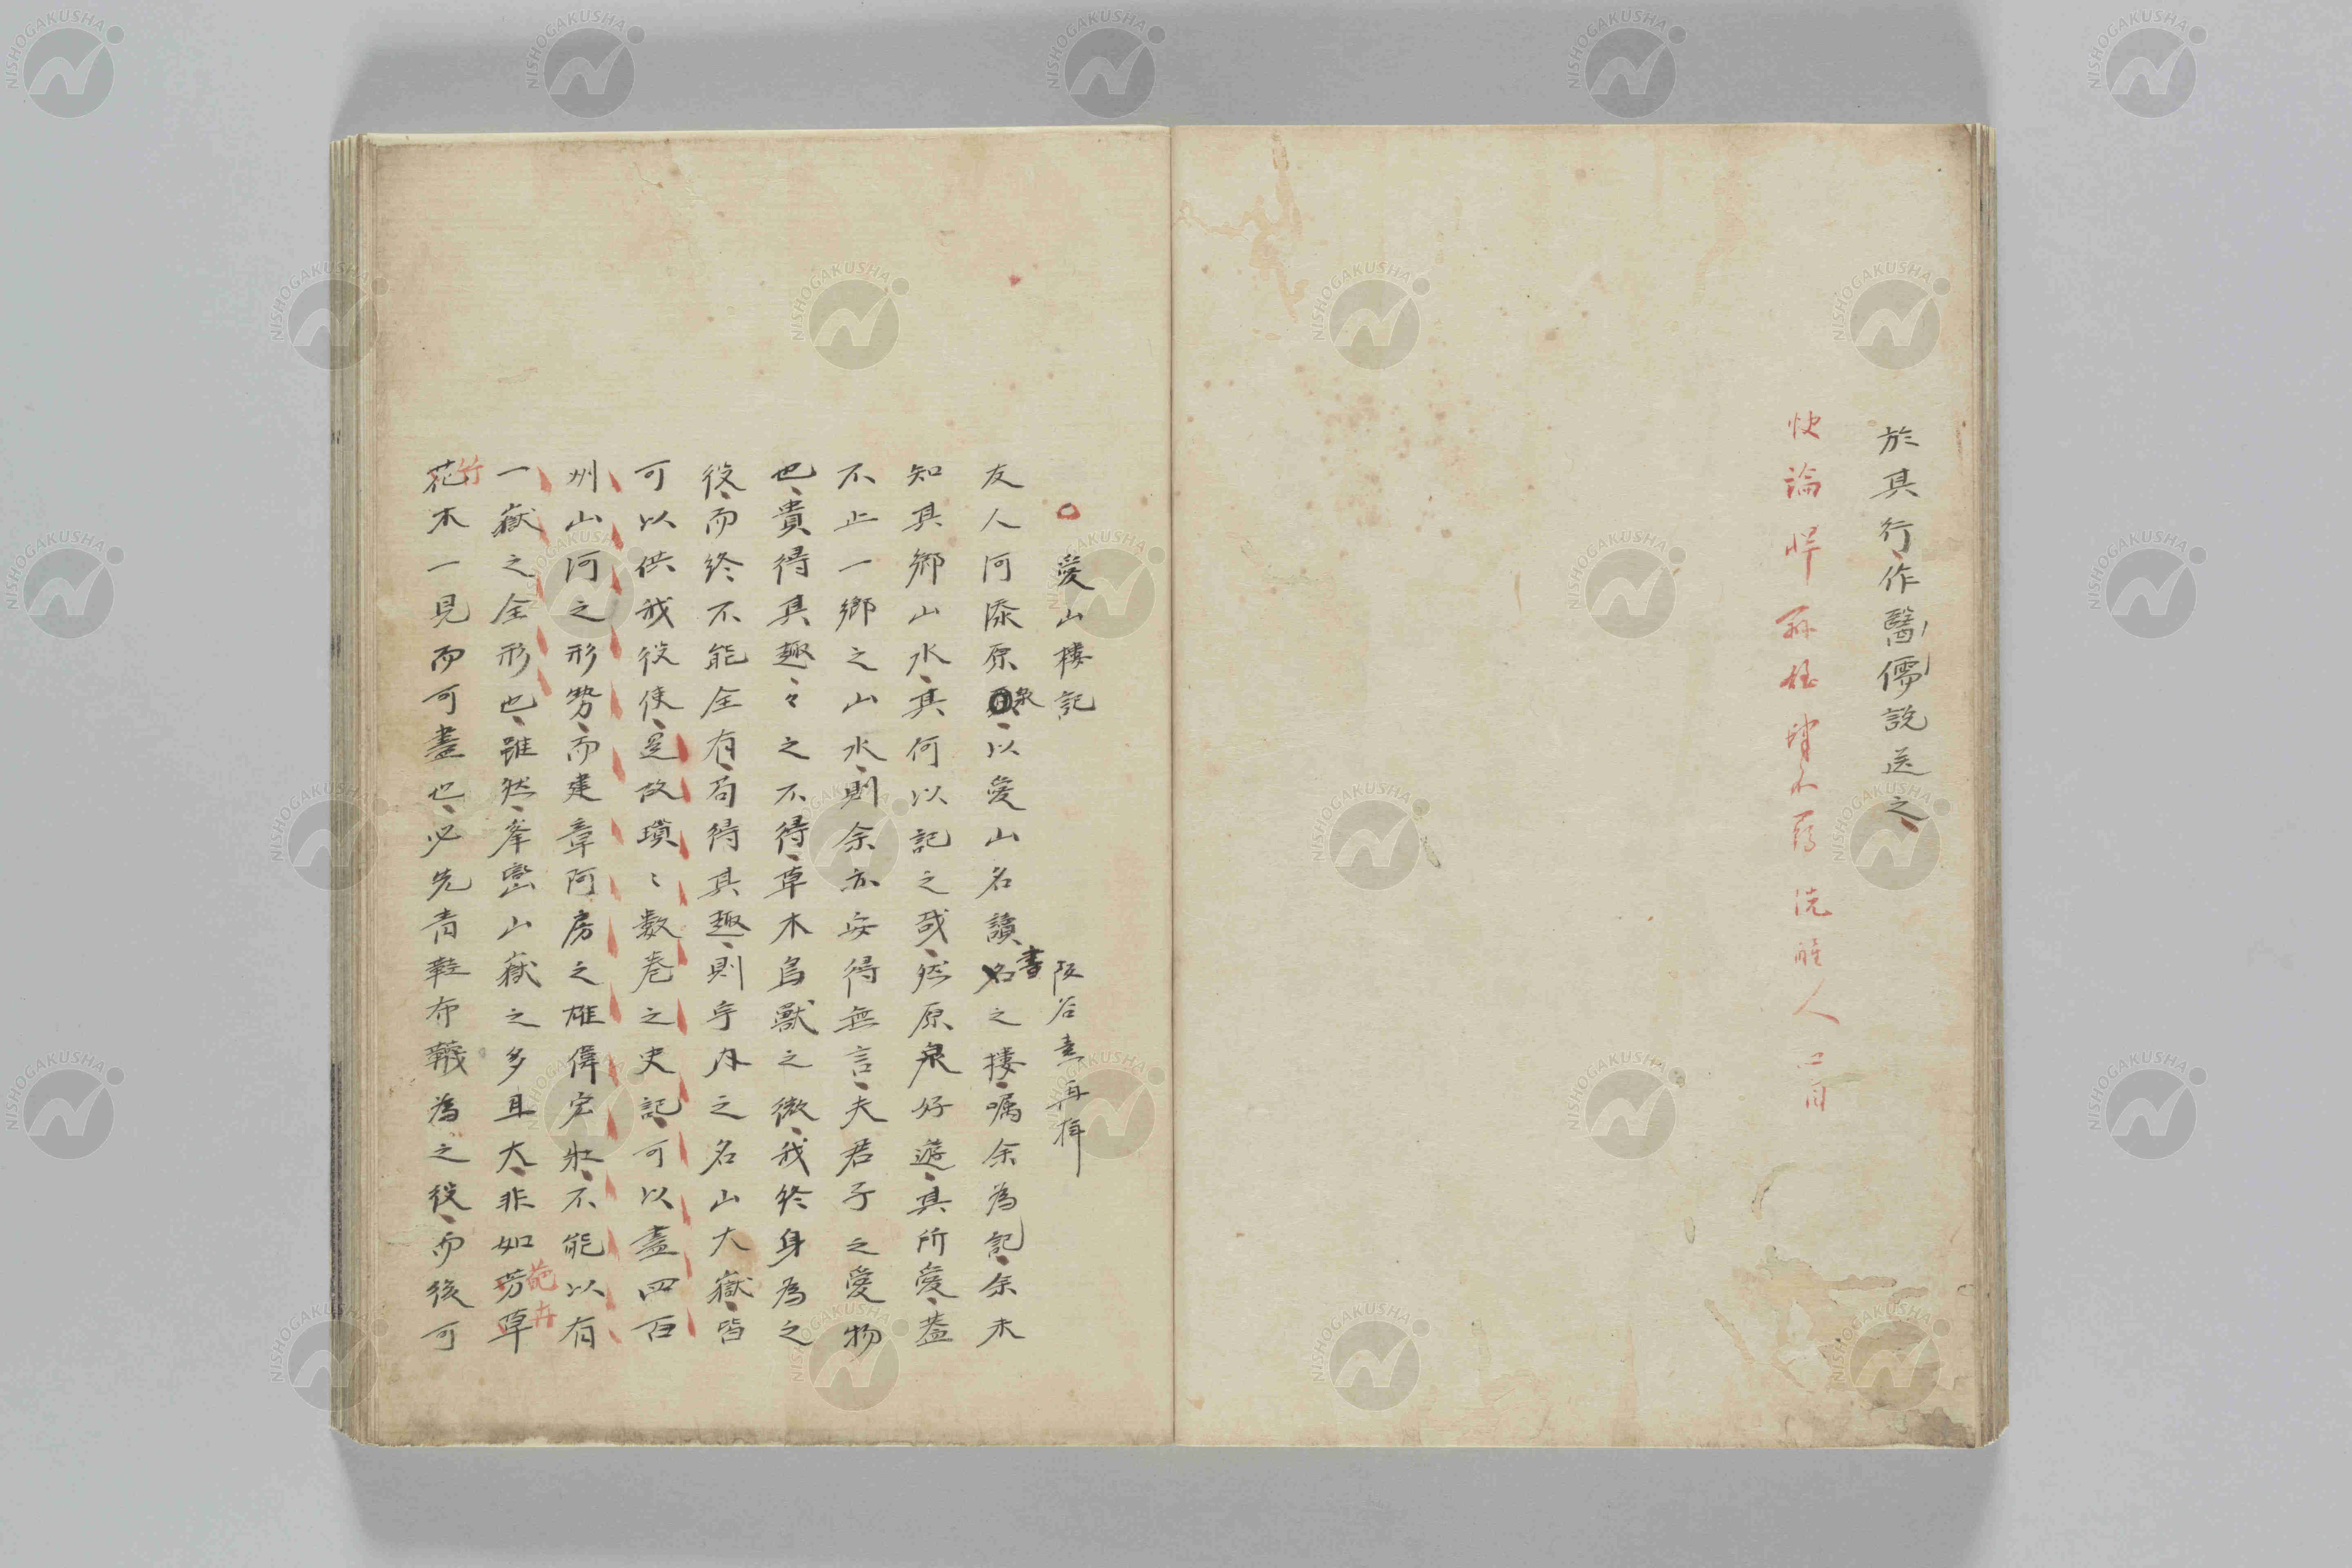 於其行、作醫儒説送之、
快論
人
愛山樓記
阪谷素再拝
友人河添原泉、以愛山名讀書之樓、嘱余為記、余未
知其郷山水、其何以記之哉、然原泉好遊、其所愛、盖
不止一郷之山水、則余亦安得無言、夫君子之愛物
也、貴得其趣、々之不得、草木鳥獸之微、我終身為之
役、而終不能全有、苟得其趣、則宇内之名山大嶽、皆
可以供我役使、是故瑣〻數巻之史記、可以盡四百
州山河之形勢、而建章阿房之雄偉宏壯、不能以有
一嶽之全形也、雖然、峯巒山嶽之多且大、非如葩卉
竹木一見而可盡也、必先青鞋布韈為之役、而後可